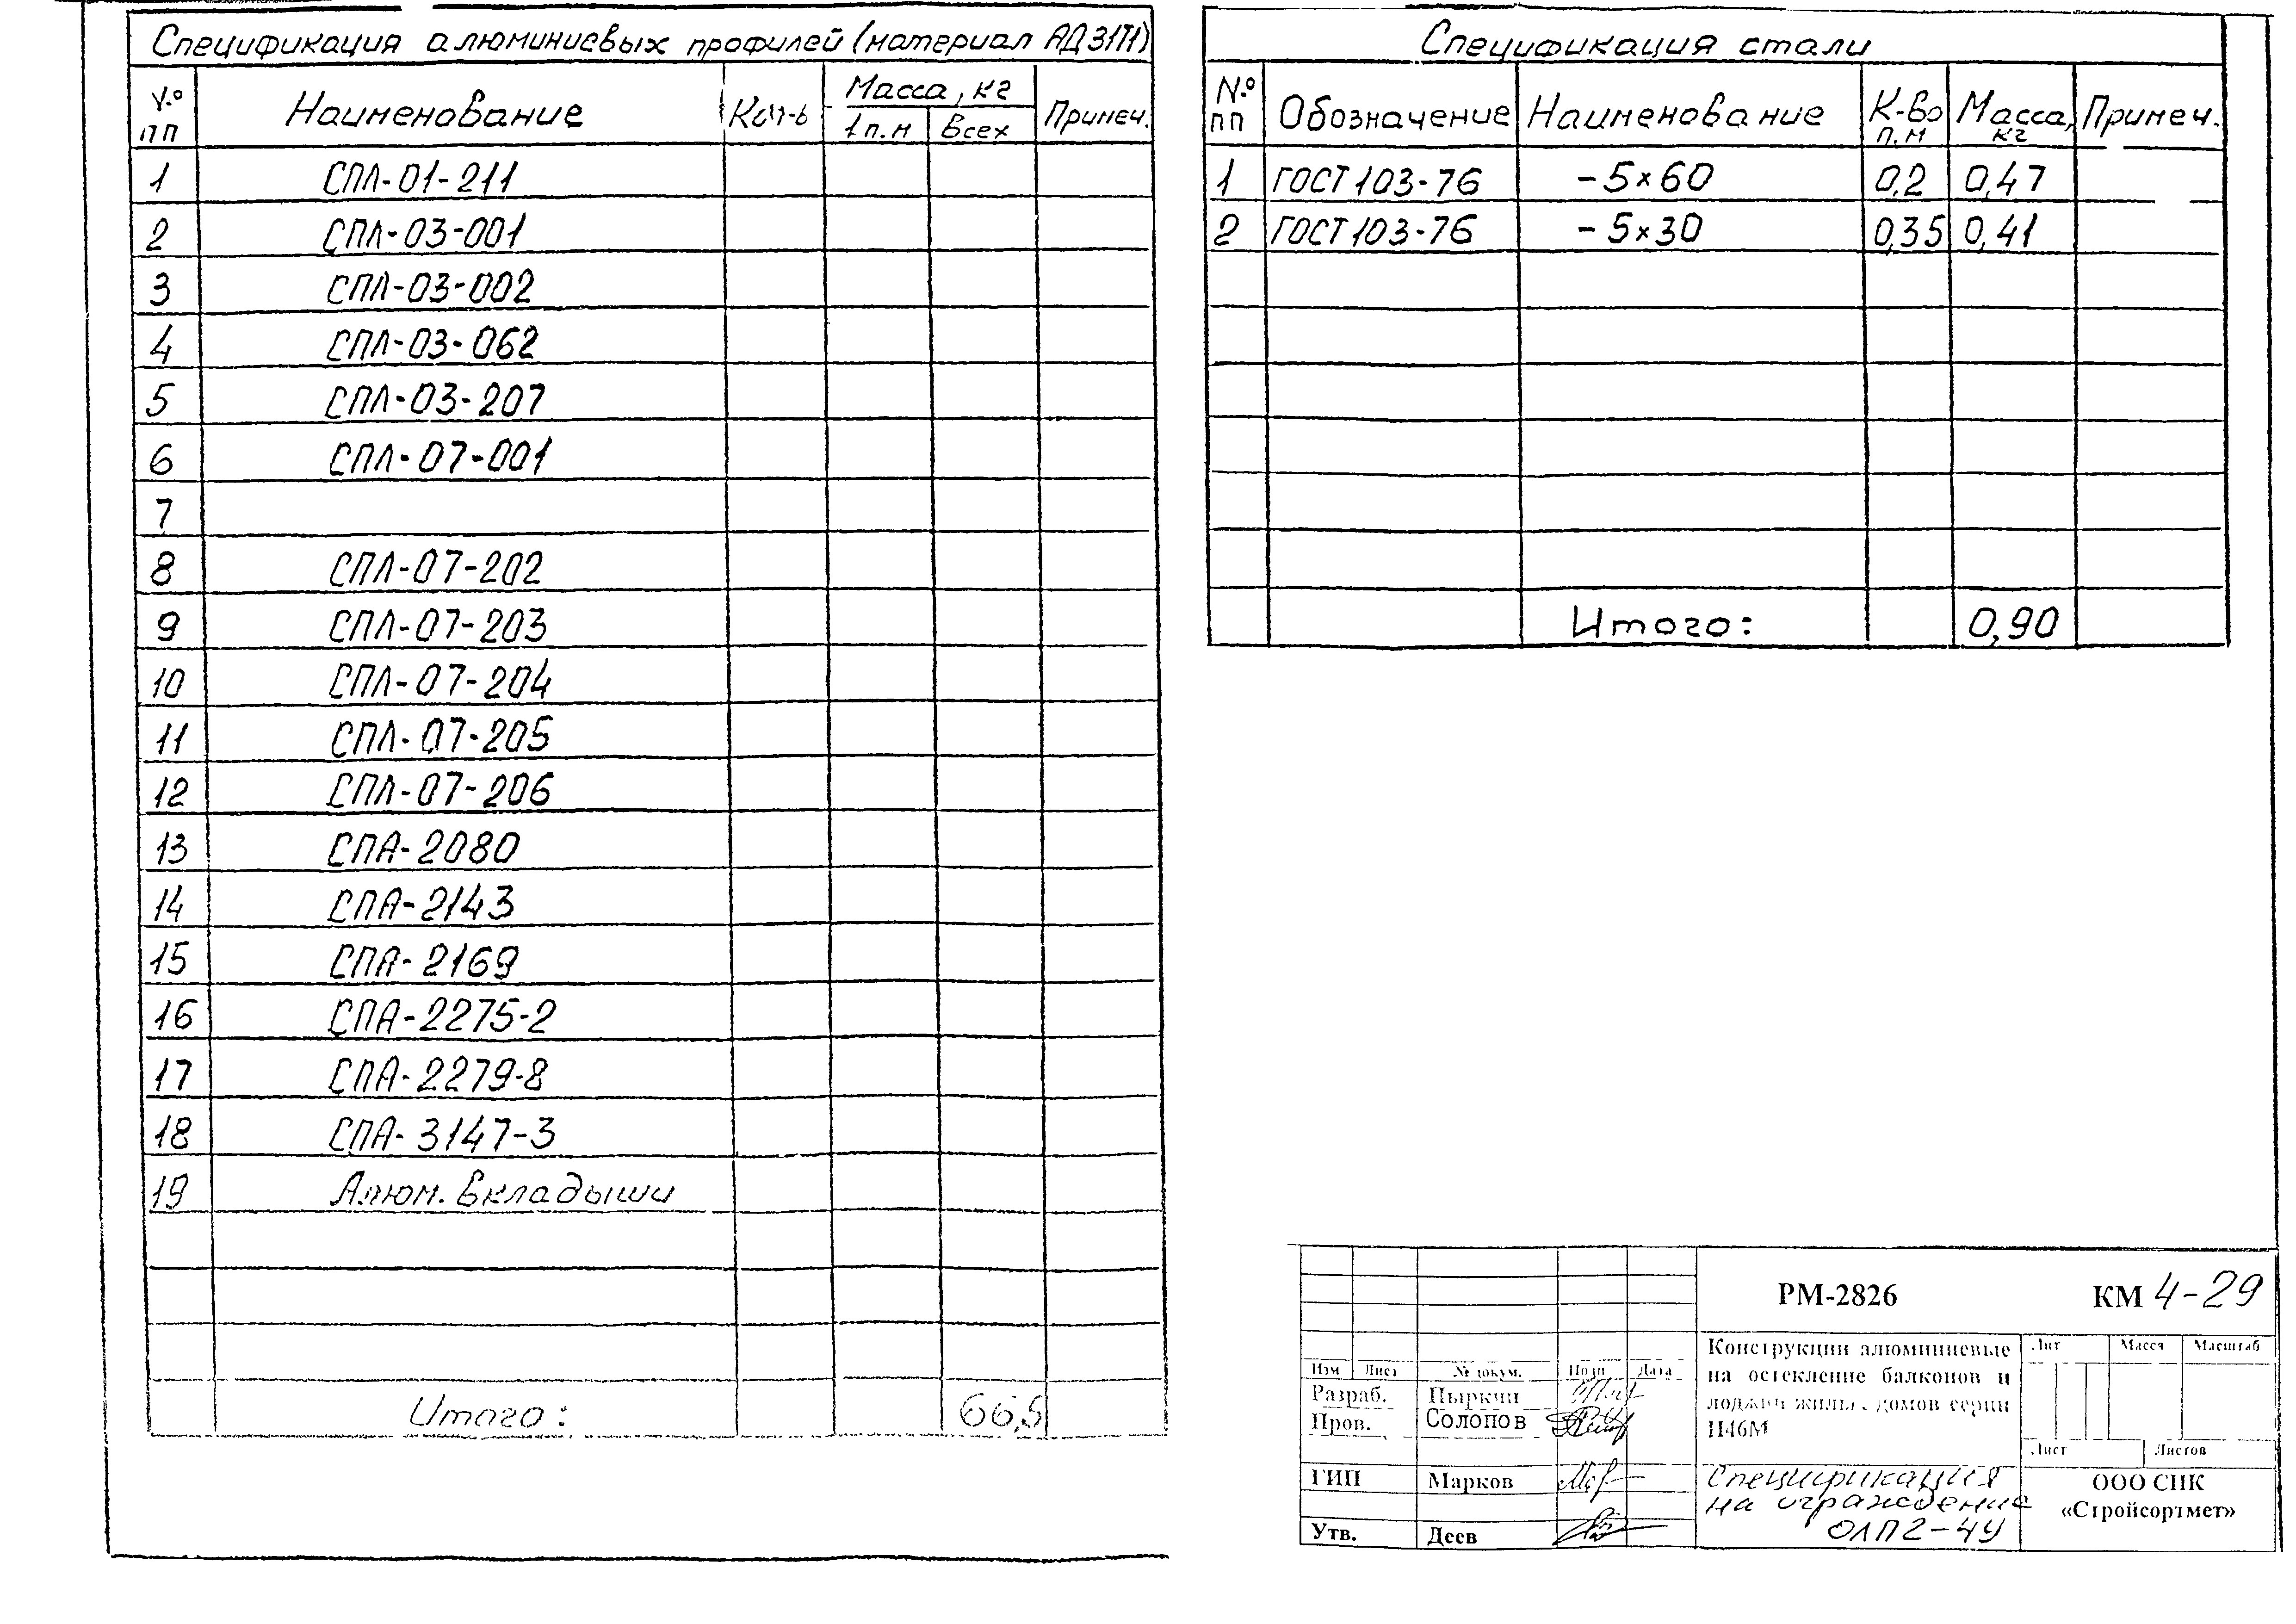 Спецификация алюминиевых профилей (материал АД31Т1)
№ пп Наименование Кол-ь Масса, кг Примеч.
1 п.м всех
1 СПЛ-01-211
2 СПЛ-03-001
3 СПЛ-03-002
4 СПЛ-03-062
5 СПЛ-03-207
6 СПЛ-07-001
7
8 СПЛ-07-202
9 СПЛ-07-203
10 СПЛ-07-204
11 СПЛ-07-205
12 СПЛ-07-206
13 СПА-2080
14 СПА-2143
15 СПА-2169
16 СПА-2275-2
17 СПА-2279-8
18 СПА-3147-3
19 Алюм. вкладыши
Итого: 66,5
Спецификация стали
№ пп Обозначение Наименование К-во п.м Масса, кг Примеч.
1 ГОСТ 103-76 -5×60 0,2 0,47
2 ГОСТ 103-76 -5×30 0,35 0,41
Итого: 0,90
РМ-2826 КМ 4-29
Изм Лист № докум. Подп Дата
Разраб. Пыркин
Пров. Солопов
ГИП Марков
Утв. Деев
Конструкции алюминиевые
на остекление балконов и
лоджий жилых домов серии
П46М
Лит Масса Масштаб
Лист Листов
Спецификация
на ограждение
ОЛП2-4У
ООО СПК
«Стройсортмет»